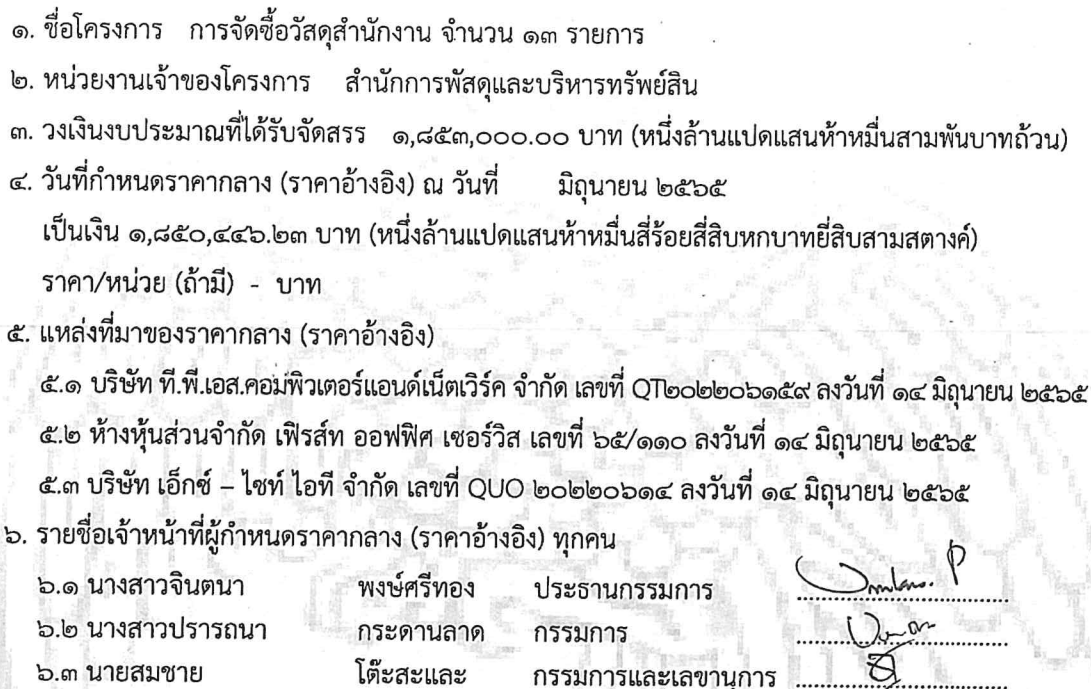 ๑. ชื่อโครงการ การจัดซื้อวัสดุสำนักงาน จำนวน ๑๓ รายการ
๒. หน่วยงานเจ้าของโครงการ สำนักการพัสดุและบริหารทรัพย์สิน
๓. วงเงินงบประมาณที่ได้รับจัดสรร ๑,๘๕๓,๐๐๐.๐๐ บาท (หนึ่งล้านแปดแสนห้าหมื่นสามพันบาทถ้วน)
๔. วันที่กำหนดราคากลาง (ราคาอ้างอิง) ณ วันที่ มิถุนายน ๒๕๖๕
เป็นเงิน ๑,๘๕๐,๔๔๖.๒๓ บาท (หนึ่งล้านแปดแสนห้าหมื่นสี่ร้อยสี่สิบหกบาทยี่สิบสามสตางค์)
ราคา/หน่วย (ถ้ามี) - บาท
๕. แหล่งที่มาของราคากลาง (ราคาอ้างอิง)
๕.๑ บริษัท ที.พี.เอส.คอมพิวเตอร์แอนด์เน็ตเวิร์ค จำกัด เลขที่ QT๒๐๒๒๐๖๑๕๙ ลงวันที่ ๑๔ มิถุนายน ๒๕๖๕
๕.๒ ห้างหุ้นส่วนจำกัด เฟิรส์ท ออฟฟิศ เซอร์วิส เลขที่ ๖๕/๑๑๐ ลงวันที่ ๑๔ มิถุนายน ๒๕๖๕
๕.๓ บริษัท เอ็กซ์ – ไซท์ ไอที จำกัด เลขที่ QUO ๒๐๒๒๐๖๑๔ ลงวันที่ ๑๔ มิถุนายน ๒๕๖๕
๖. รายชื่อเจ้าหน้าที่ผู้กำหนดราคากลาง (ราคาอ้างอิง) ทุกคน
๖.๑ นางสาวจินตนา พงษ์ศรีทอง ประธานกรรมการ
๖.๒ นางสาวปรารถนา กระดานลาด กรรมการ
๖.๓ นายสมชาย โต๊ะสะและ กรรมการและเลขานุการ